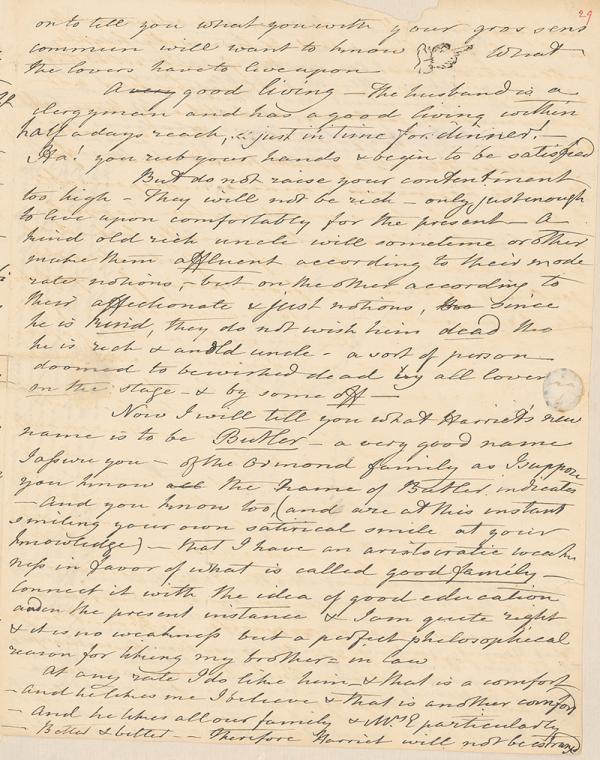 29
on to tell you what you with your gros sens
commun will want to know What
the lovers have to live upon
A very good living – The husband is a
clergyman and has a good living within
half a days reach, just in time for dinner. –
Ha! you rub your hands & begin to be satisfied
But do not raise your contentment
too high – They will not be rich – only just enough
to live upon comfortably for the present – A
kind old rich uncle will sometime or other
make them affluent according to their mode
rate notions, – but on the other according to
their affectionate & just notions, tho since
he is kind, they do not wish him dead tho
he is rich & an old uncle – a sort of person
doomed to be wished dead by all lovers
on the stage – & by some off –
Now I will tell you what Harriet's new
name is to be Butler – a very good name
I assure you – of the Ormond family as I suppose
you know all the name of Butler indicates
– And you know too, (and are at this instant
smiling your own satirical smile at your
knowledge) – that I have an aristocratic weak
ness in favor of what is called good family –
connect it with the idea of good education
and in the present instance & I am quite right
& it is no weakness but a perfect philosophical
reason for liking my brother = in law
At any rate I do like him – & that is a comfort
– And he likes me I believe & that is another comfort
– And he likes all our family & Mrs E particularly
– Better & better – Therefore Harriet will not be